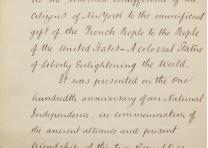 citizens of New York to the munificent
gift of the French People to the People
of the United States – A colossal Statue
of Liberty Enlightening the World.
It was presented on the one
hundredth anniversary of our National
Independence, in commemoration of
the ancient alliance and present
friendship of the two